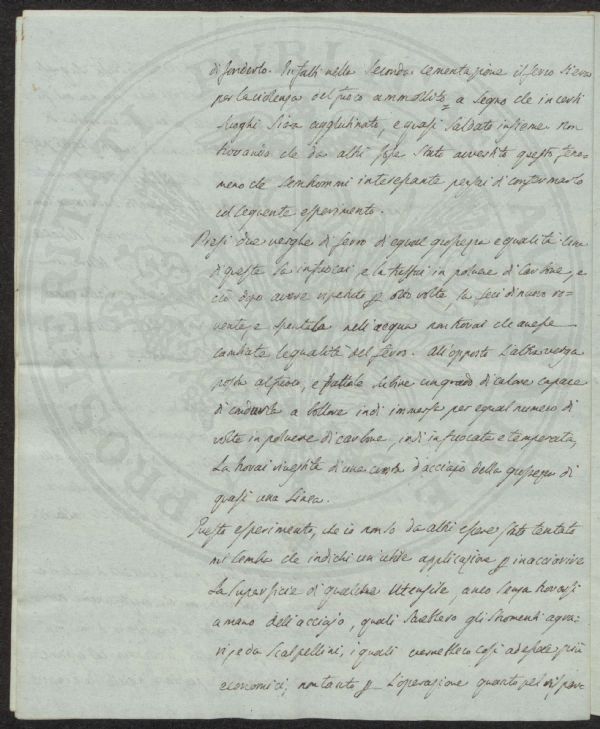 di fonderlo. Infatti nella seconda cementazione il ferro si era
per la violenza del fuoco ammollito a segno che in certi
luoghi si era agglutinato, e quasi saldato insieme non
trovando che da altri fosse stato avvertito questo feno=
meno che sembrommi interessante pensai di confermarlo
col seguente esperimento.
Presi due verghe di ferro di egual grossezza e qualità una
di queste la infuocai e la tuffai in polvere di carbone, e
ciò dopo avere ripetuto p otto volte, la feci di nuovo ro=
vente, e spentala nell'acqua non trovai che avesse
cambiate le qualità del ferro. All'opposto l'altra verga
posta al fuoco, e fattale subire un grado di calore capace
di condurla a bollore indi immersa per egual numero di
volte in polvere di carbone, indi infuocata e temperata,
la trovai rivestita di una crosta d'acciajo della grossezza di
quasi una Linea.
Questo esperimento, che io non so da altri essere stato tentato
mi sembra che indichi un'utile applicazione p inacciarire
la superficie di qualche Utensile, anco senza trovarsi
a mano dell'acciajo, quali sarebbero gli Stromenti agra=
rj, e da Scalpellini, i quali verrebbero così ad essere più
economici, non tanto p L'operazione quanto pel risparm